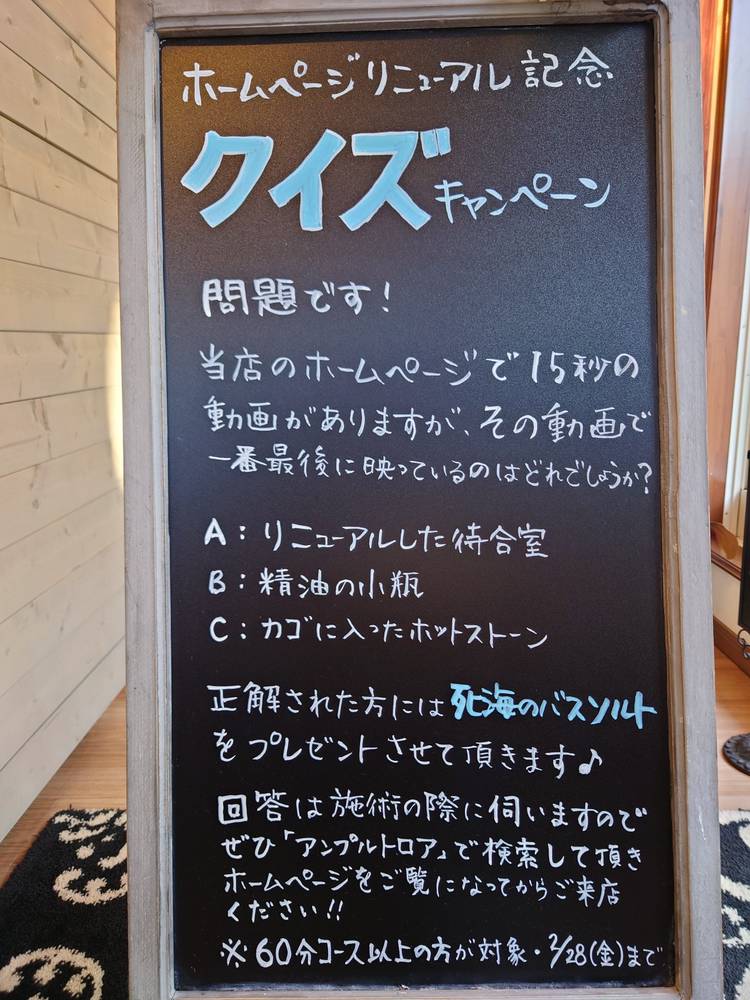 ホームページリニューアル記念
クイズキャンペーン
問題です!
当店のホームページで15秒の
動画がありますが、その動画で
一番最後に映っているのはどれでしょうか?
A:リニューアルした待合室
B:精油の小瓶
C:カゴに入ったホットストーン
正解された方には死海のバスソルト
をプレゼントさせて頂きます♪
回答は施術の際に伺いますので
ぜひ「アンプルトロア」で検索して頂き
ホームページをご覧になってからご来店
ください!!
※60分コース以上の方が対象・2/28(金)まで